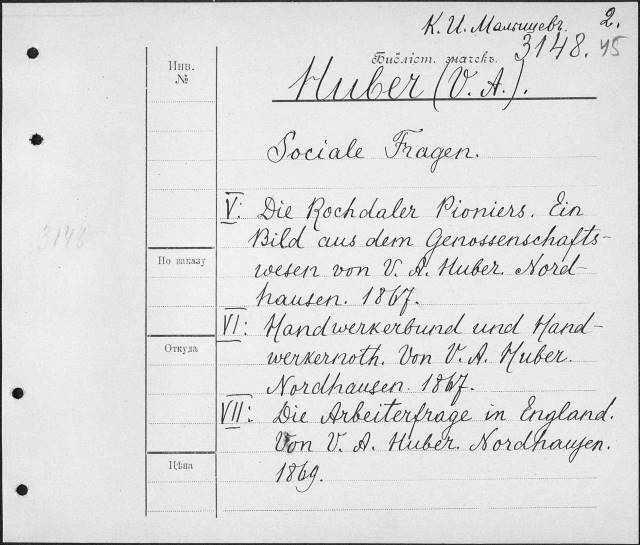 К. И. Малышевъ. 2.
3148. 45
Библіот. значекъ.
Инв.
№
Huber (V. A.).
Sociale Fragen.
V: Die Rochdaler Pioniers. Ein
Bild aus dem Genossenschafts-
wesen von V. A. Huber. Nord-
hausen. 1867.
3148
По заказу
VI: Handwerkerbund und Hand-
werkernoth. Von V. A. Huber.
Nordhausen. 1867.
Откуда
VII: Die Arbeiterfrage in England.
Von V. A. Huber. Nordhausen.
1869.
Цѣна